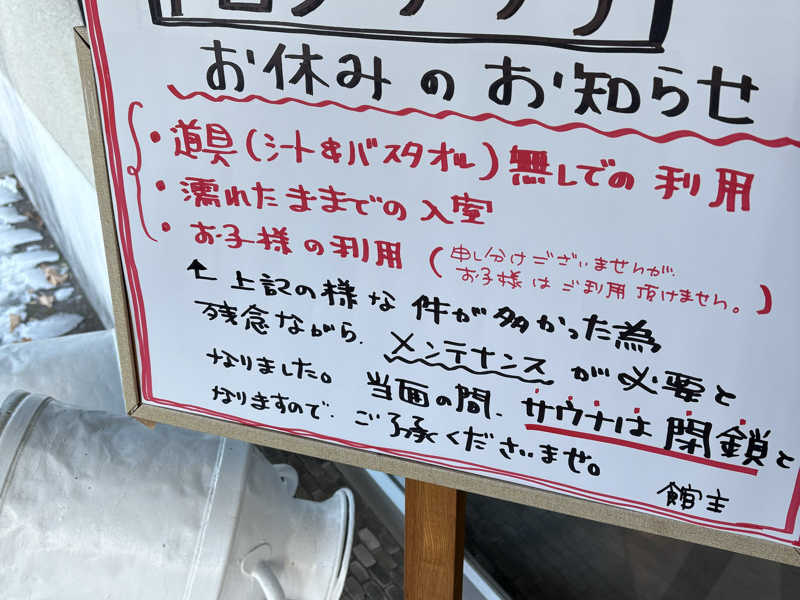 お休みのお知らせ
・道具(シート&バスタオル)無しでの利用
・濡れたままでの入室
・お子様の利用(申し分けございませんが、
お子様はご利用頂けません。)
↑上記の様な件が多かった為、
残念ながら、メンテナンスが必要と
なりました。当面の間、サウナは閉鎖と
なりますので、ご了承くださいませ。
館主